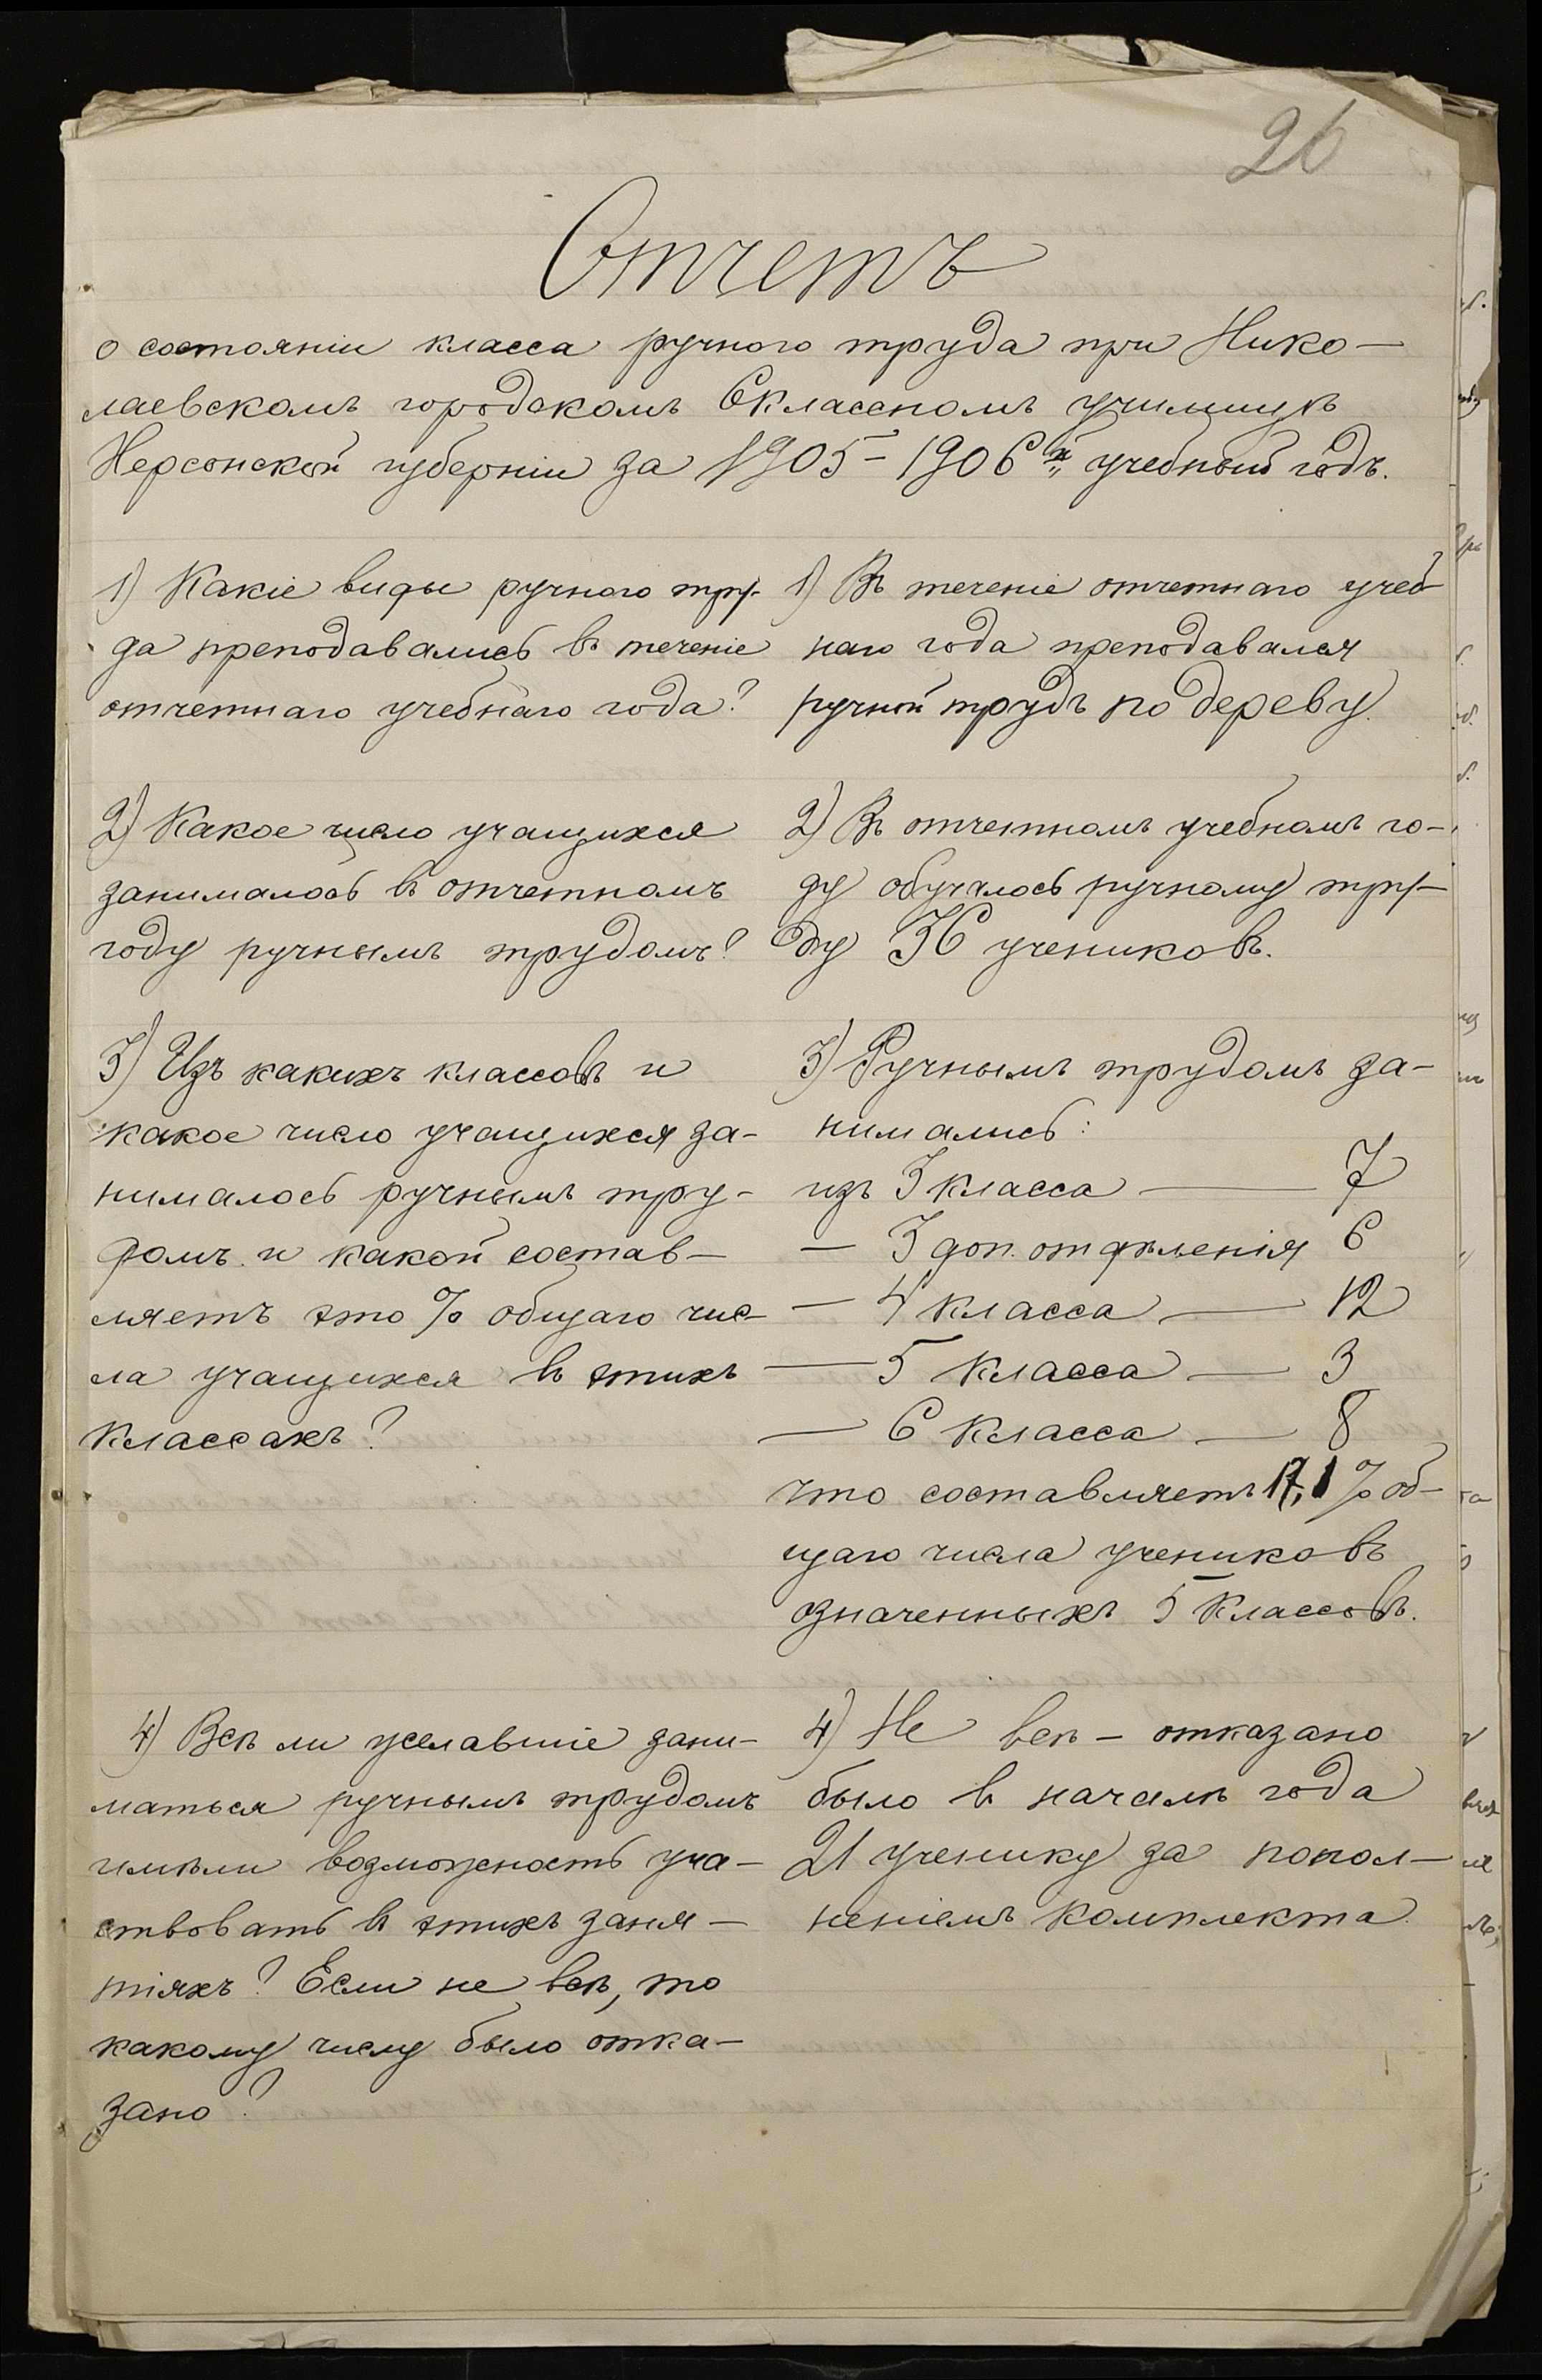 26
Отчетъ
о состояніи класса ручного труда при Нико-
лаевскомъ городскомъ 6 классномъ училищѣ
Херсонской губерніи за 1905-1906й учебный годъ.
1) Какіе виды ручного тру-
да преподавались въ теченіе
отчетнаго учебнаго года?
1) Въ теченіе отчетнаго учеб
наго года преподавался
ручной трудъ по дереву.
2) Какое число учащихся
занималось въ отчетномъ
году ручнымъ трудомъ?
2) Въ отчетномъ учебномъ го-
ду обучалось ручному тру-
ду 36 учениковъ.
3) Изъ какихъ классовъ и
какое число учащихся за-
нималось ручнымъ тру-
домъ и какой состав-
ляетъ это % общаго чис-
ла учащихся въ этихъ
классахъ?
3) Ручнымъ трудомъ за-
нимались:
изъ 3 класса — 7
— 3 доп. отдѣленія 6
— 4 класса — 12
— 5 класса — 3
— 6 класса — 8
что составляетъ 17,1 % об-
щаго числа учениковъ
означенныхъ 5 классовъ.
4) Всѣ ли желавшіе зани-
маться ручнымъ трудомъ
имѣли возможность уча-
ствовать въ этихъ заня-
тіяхъ? Если не всѣ, то
какому числу было отка-
зано?
4) Не всѣ - отказано
было въ началѣ года
21 ученику за попол-
неніемъ комплекта.